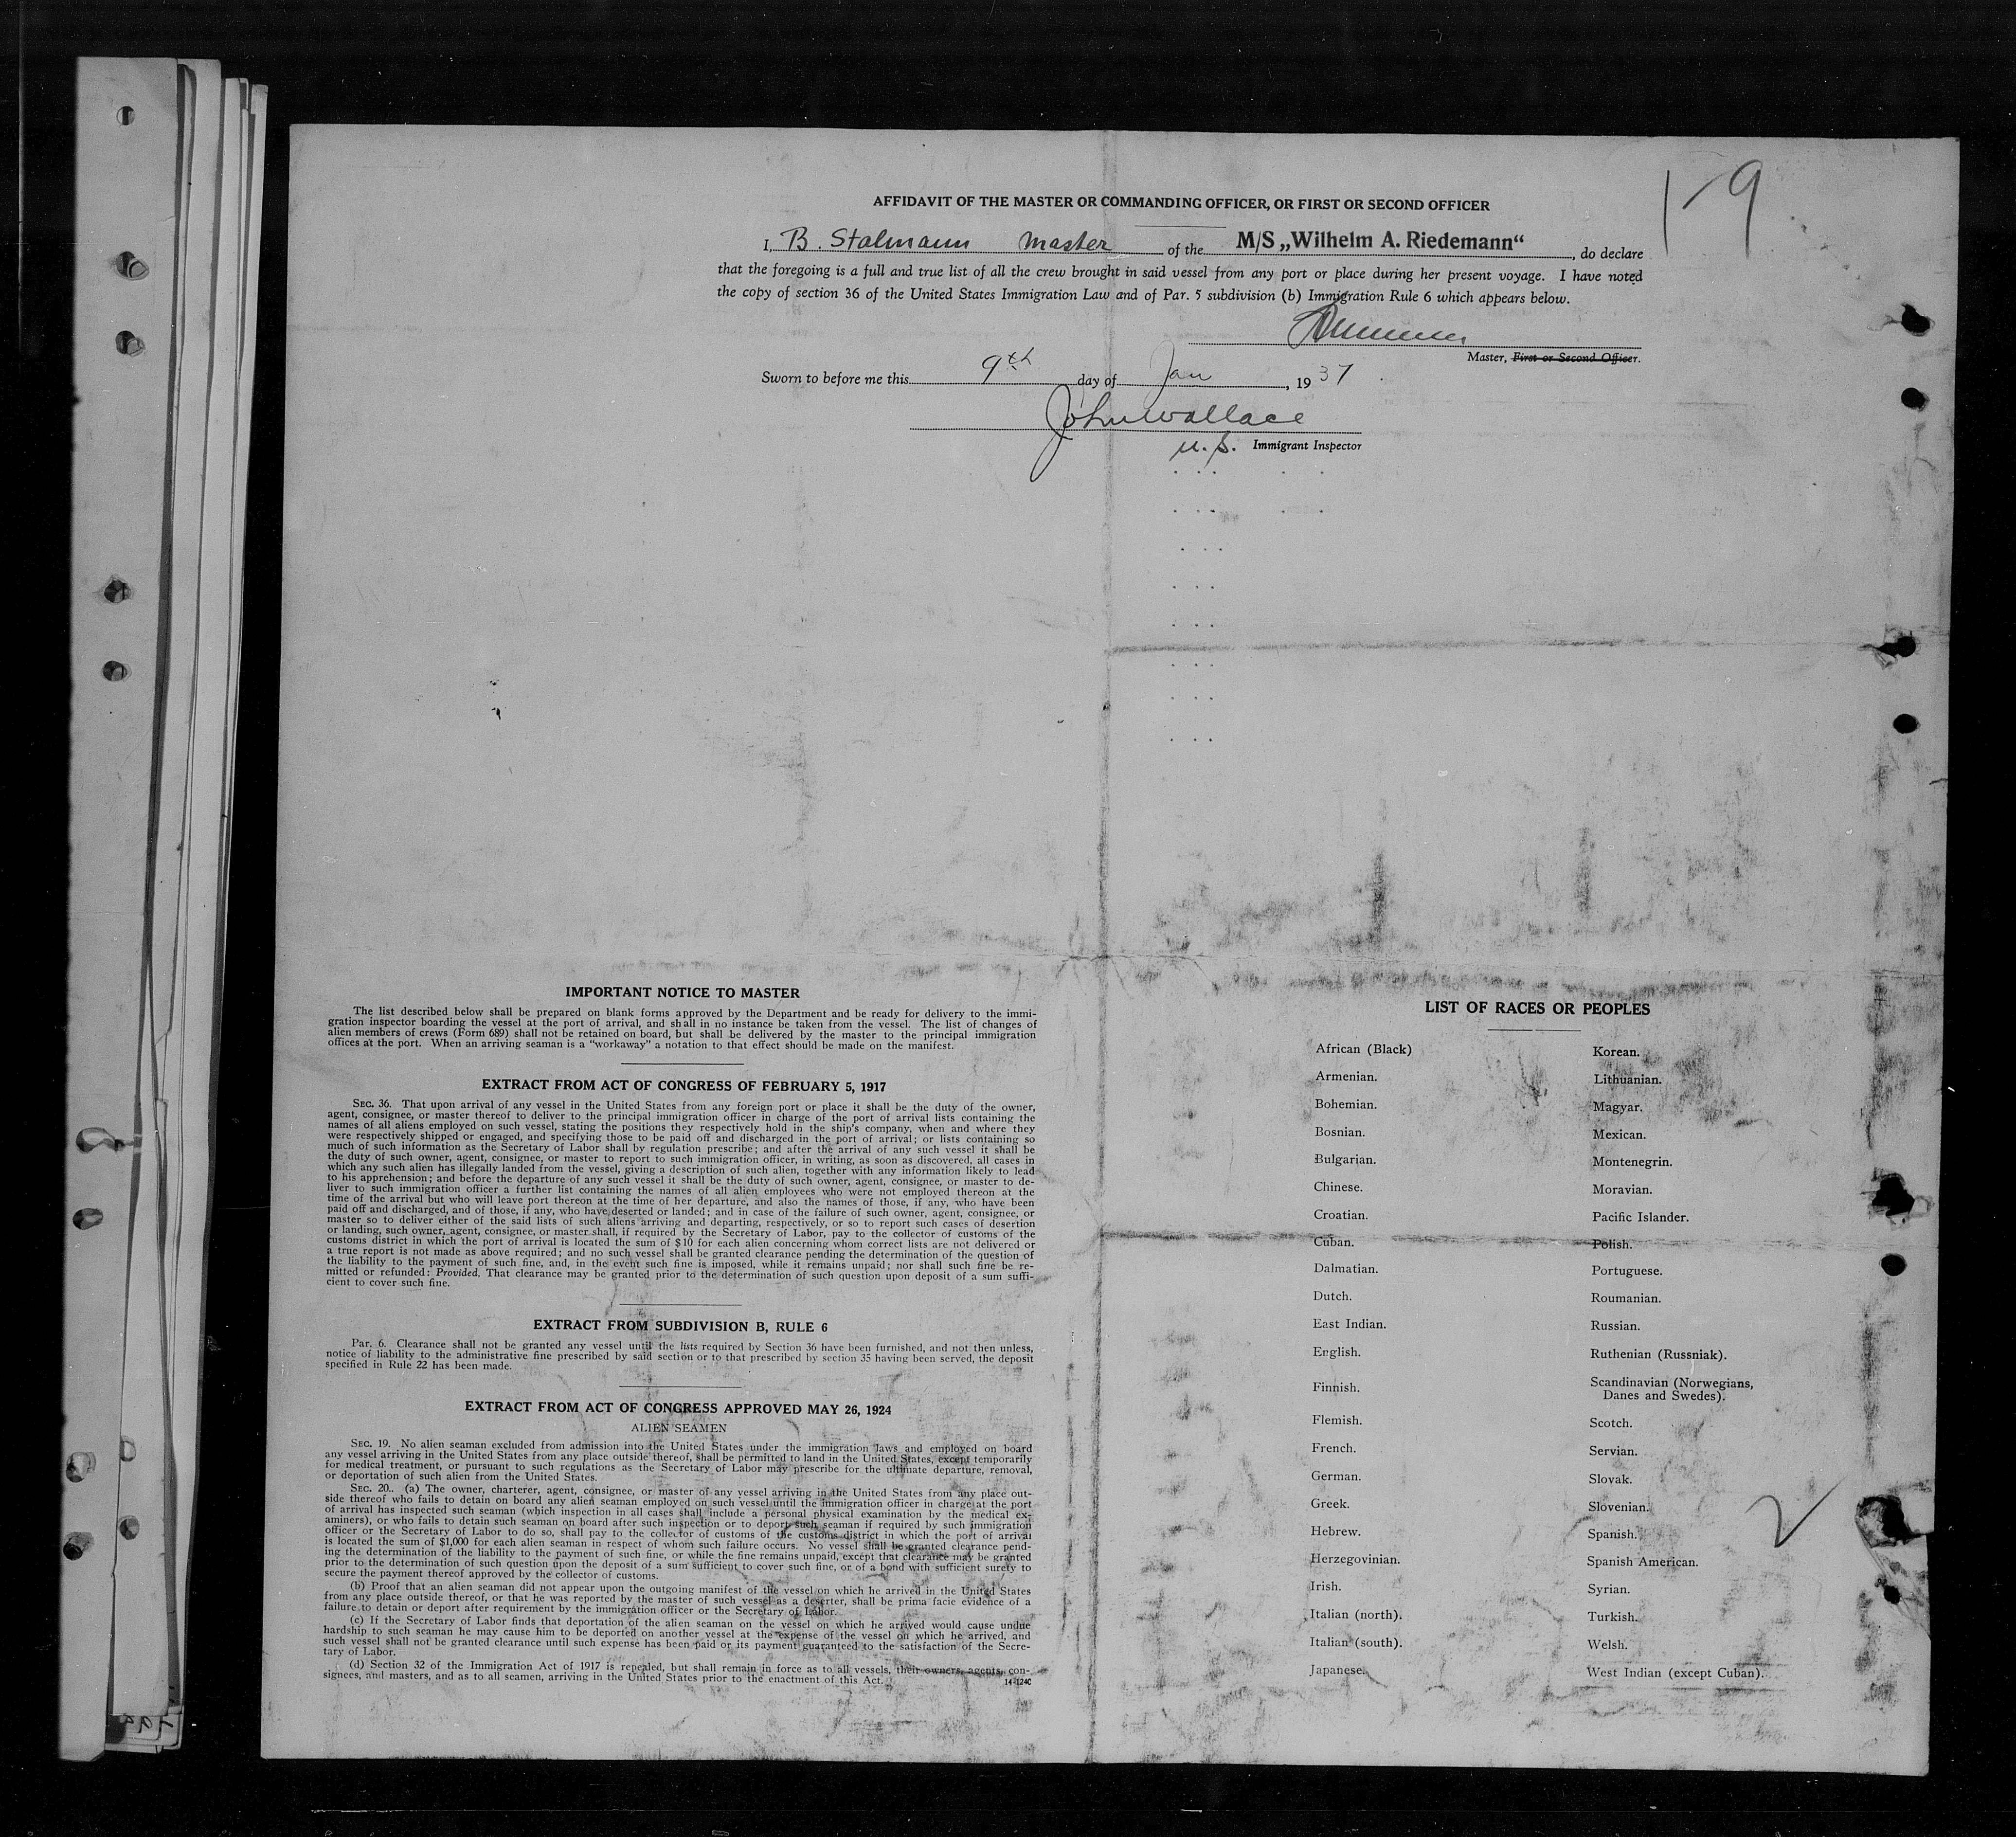 1-9
AFFIDAVIT OF THE MASTER OR COMMANDING OFFICER, OR FIRST OR SECOND OFFICER
I, B. Stalmann master of the M/S „Wilhelm A. Riedemann“, do declare
that the foregoing is a full and true list of all the crew brought in said vessel from any port or place during her present voyage. I have noted
the copy of section 36 of the United States Immigration Law and of Par. 5 subdivision (b) Immigration Rule 6 which appears below.
Master, First or Second Officer.
Sworn to before me this 9th day of Jan, 1937
John Wallace
U.S. Immigrant Inspector
IMPORTANT NOTICE TO MASTER
The list described below shall be prepared on blank forms approved by the Department and be ready for delivery to the immi-
gration inspector boarding the vessel at the port of arrival, and shall in no instance be taken from the vessel. The list of changes of
alien members of crews (Form 689) shall not be retained on board, but shall be delivered by the master to the principal immigration
offices at the port. When an arriving seaman is a "workaway" a notation to that effect should be made on the manifest.
EXTRACT FROM ACT OF CONGRESS OF FEBRUARY 5, 1917
SEC. 36. That upon arrival of any vessel in the United States from any foreign port or place it shall be the duty of the owner,
agent, consignee, or master thereof to deliver to the principal immigration officer in charge of the port of arrival lists containing the
names of all aliens employed on such vessel, stating the positions they respectively hold in the ship's company, when and where they
were respectively shipped or engaged, and specifying those to be paid off and discharged in the port of arrival; or lists containing so
much of such information as the Secretary of Labor shall by regulation prescribe; and after the arrival of any such vessel it shall be
the duty of such owner, agent, consignee, or master to report to such immigration officer, in writing, as soon as discovered, all cases in
which any such alien has illegally landed from the vessel, giving a description of such alien, together with any information likely to lead
to his apprehension; and before the departure of any such vessel it shall be the duty of such owner, agent, consignee, or master to de-
liver to such immigration officer a further list containing the names of all alien employees who were not employed thereon at the
time of the arrival but who will leave port thereon at the time of her departure, and also the names of those, if any, who have been
paid off and discharged, and of those, if any, who have deserted or landed; and in case of the failure of such owner, agent, consignee, or
master so to deliver either of the said lists of such aliens arriving and departing, respectively, or so to report such cases of desertion
or landing, such owner, agent, consignee, or master shall, if required by the Secretary of Labor, pay to the collector of customs of the
customs district in which the port of arrival is located the sum of $10 for each alien concerning whom correct lists are not delivered or
a true report is not made as above required; and no such vessel shall be granted clearance pending the determination of the question of
the liability to the payment of such fine, and, in the event such fine is imposed, while it remains unpaid; nor shall such fine be re-
mitted or refunded: Provided, That clearance may be granted prior to the determination of such question upon deposit of a sum suffi-
cient to cover such fine.
EXTRACT FROM SUBDIVISION B, RULE 6
Par. 6. Clearance shall not be granted any vessel until the lists required by Section 36 have been furnished, and not then unless,
notice of liability to the administrative fine prescribed by said section or to that prescribed by section 35 having been served, the deposit
specified in Rule 22 has been made.
EXTRACT FROM ACT OF CONGRESS APPROVED MAY 26, 1924
ALIEN SEAMEN
SEC. 19. No alien seaman excluded from admission into the United States under the immigration laws and employed on board
any vessel arriving in the United States from any place outside thereof, shall be permitted to land in the United States, except temporarily
for medical treatment, or pursuant to such regulations as the Secretary of Labor may prescribe for the ultimate departure, removal,
or deportation of such alien from the United States.
SEC. 20. (a) The owner, charterer, agent, consignee, or master of any vessel arriving in the United States from any place out-
side thereof who fails to detain on board any alien seaman employed on such vessel until the immigration officer in charge at the port
of arrival has inspected such seaman (which inspection in all cases shall include a personal physical examination by the medical ex-
aminers), or who fails to detain such seaman on board after such inspection or to deport such seaman if required by such immigration
officer or the Secretary of Labor to do so, shall pay to the collector of customs of the customs district in which the port of arrival
is located the sum of $1,000 for each alien seaman in respect of whom such failure occurs. No vessel shall be granted clearance pend-
ing the determination of the liability to the payment of such fine, or while the fine remains unpaid, except that clearance may be granted
prior to the determination of such question upon the deposit of a sum sufficient to cover such fine, or of a bond with sufficient surety to
secure the payment thereof approved by the collector of customs.
(b) Proof that an alien seaman did not appear upon the outgoing manifest of the vessel on which he arrived in the United States
from any place outside thereof, or that he was reported by the master of such vessel as a deserter, shall be prima facie evidence of a
failure to detain or deport after requirement by the immigration officer or the Secretary of Labor.
(c) If the Secretary of Labor finds that deportation of the alien seaman on the vessel on which he arrived would cause undue
hardship to such seaman he may cause him to be deported on another vessel at the expense of the vessel on which he arrived, and
such vessel shall not be granted clearance until such expense has been paid or its payment guaranteed to the satisfaction of the Secre-
tary of Labor.
(d) Section 32 of the Immigration Act of 1917 is repealed, but shall remain in force as to all vessels, their owners, agents, con-
signees, and masters, and as to all seamen, arriving in the United States prior to the enactment of this Act.
14-1240
LIST OF RACES OR PEOPLES
African (Black)
Armenian.
Bohemian.
Bosnian.
Bulgarian.
Chinese.
Croatian.
Cuban.
Dalmatian.
Dutch.
East Indian.
English.
Finnish.
Flemish.
French.
German.
Greek.
Hebrew.
Herzegovinian.
Irish.
Italian (north).
Italian (south).
Japanese.
Korean.
Lithuanian.
Magyar.
Mexican.
Montenegrin.
Moravian.
Pacific Islander.
Polish.
Portuguese.
Roumanian.
Russian.
Ruthenian (Russniak).
Scandinavian (Norwegians,
Danes and Swedes).
Scotch.
Servian.
Slovak.
Slovenian.
Spanish.
Spanish American.
Syrian.
Turkish.
Welsh.
West Indian (except Cuban).